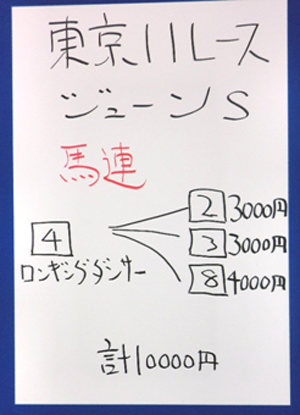 東京11レース
ジューンS
馬連
2 3000円
4 3 3000円
ロンギングダンサー 8 4000円
計10000円